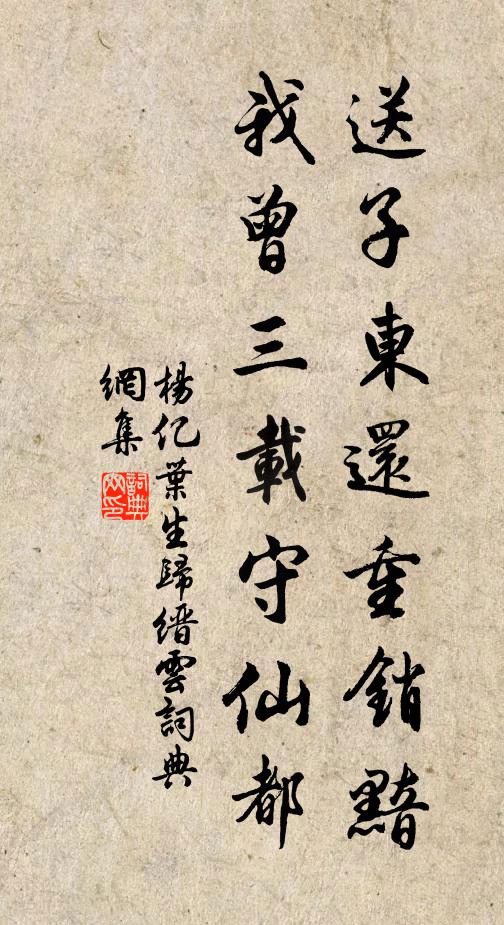 送子東還重銷黯
我曾三載守仙都
楊亿葉生歸縉雲詞典
網集
詞典網印